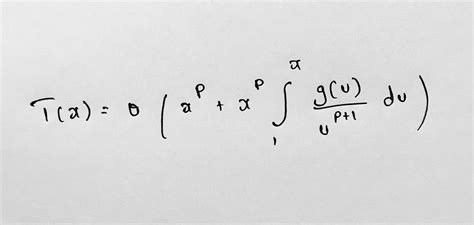 T(x) = θ ( x^p + x^p ∫_1^x g(u)/u^(p+1) du )